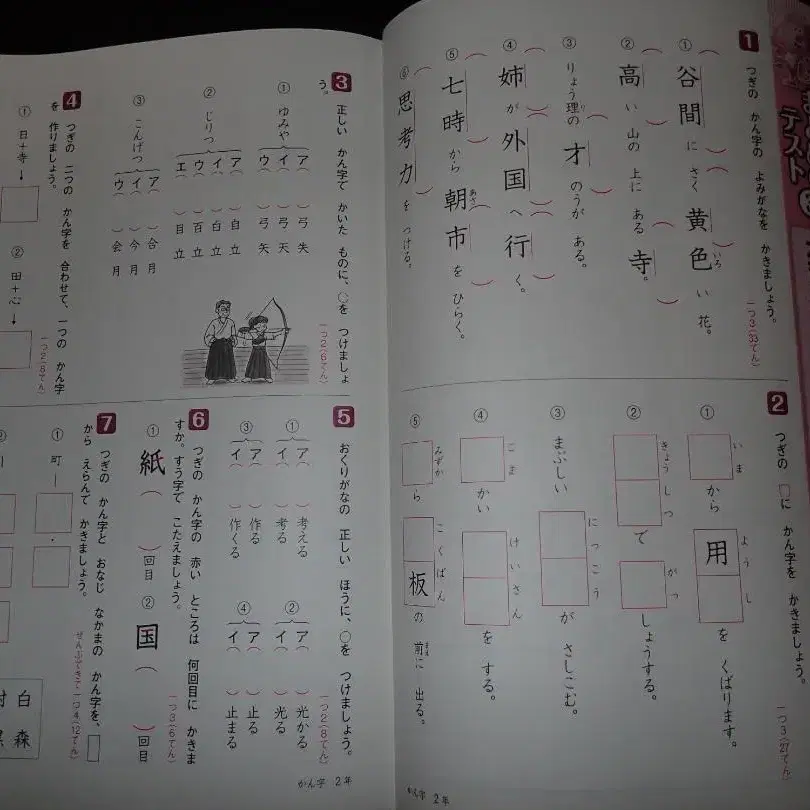 テスト
1 つぎの かん字の よみがなを かきましょう。
一つ3(33てん)
① 谷間に さく 黄色い 花。
いろ
② 高い 山の 上に ある 寺。
③ りょう理の 才のうが ある。
り
④ 姉が 外国へ 行く。
⑤ 七時から 朝市を ひらく。
あさ
⑥ 思考力を つける。
2 つぎの □に かん字を かきましょう。
一つ3(27てん)
① いま から ようし 用 を くばります。
② きょうしつ で がっ しょうする。
③ まぶしい にっこう が さしこむ。
④ こま かい けいさん を する。
⑤ みずか ら こくばん 板 の 前に 出る。
まえ
かん字 2年
3 正しい かん字で かいた ものに、○を つけましょう。
一つ2(6てん)
① ゆみや
ア( )弓矢
イ( )弓天
ウ( )弓失
② じりつ
ア( )自立
イ( )白立
ウ( )百立
エ( )目立
③ こんげつ
ア( )合月
イ( )今月
ウ( )会月
4 つぎの 二つの かん字を 合わせて、一つの かん字を 作りましょう。
一つ2(8てん)
① 日+寺→
② 田+心→
5 おくりがなの 正しい ほうに、○を つけましょう。
一つ2(8てん)
① ア( )考える
イ( )考る
② ア( )光かる
イ( )光る
③ ア( )作る
イ( )作くる
④ ア( )止る
イ( )止まる
6 つぎの かん字の 赤い ところは 何回目に かきますか。すう字で こたえましょう。
一つ3(6てん)
① 紙( )回目
② 国( )回目
7 つぎの かん字と おなじ なかまの かん字を、□から えらんで かきましょう。
ぜんぶできて一つ4(12てん)
① 町—
白 森
村
かん字 2年